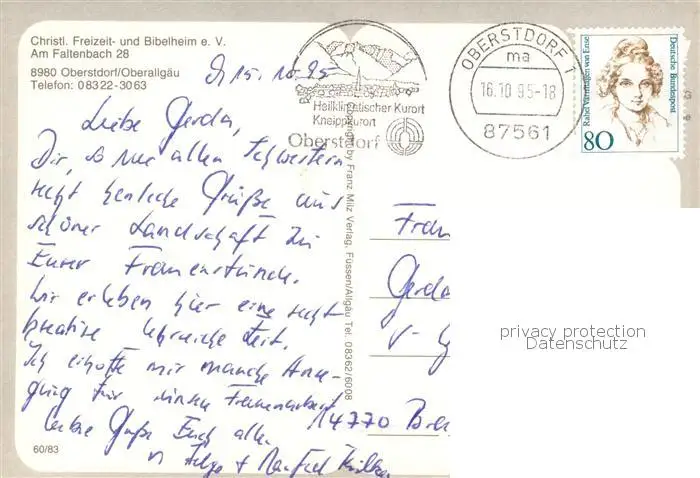 Christl. Freizeit- und Bibelheim e. V.
Am Faltenbach 28
8980 Oberstdorf/Oberallgäu
Telefon: 08322-3063
15. 10. 95
Liebe Gerda,
Dir, allen Schwestern
recht herzliche Grüße aus
schöner Landschaft zu
Eurer Frauenstunde.
Wir erleben hier eine recht
kreative lehrreiche Zeit.
Ich erhoffe mir manche Anre-
gung für Frauenarbeit
liebe Grüße Euch allen
60/83
Heilklimatischer Kurort
Kneippkurort
Oberstdorf
OBERSTDORF 1
ma
16.10 95-18
87561
Rahel Varnhagen von Ense
Deutsche Bundespost
80
Copyright by Franz Milz Verlag, Füssen/Allgäu Tel. 08362/6008
Frau
Gerda
14770
privacy protection
Datenschutz